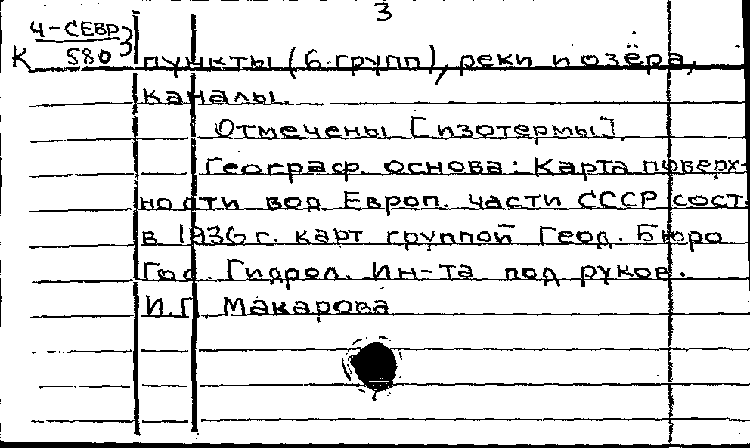 3
Ч-СЕВР
К 580 3
пункты (6 групп), реки и озёра,
каналы.
Отмечены [изотермы].
Географ. основа: Карта поверх-
ности вод Европ. части СССР сост.
в 1936 г. карт группой Геод. Бюро
Гос. Гидрол. Ин-та под руков.
И.Г. Макарова